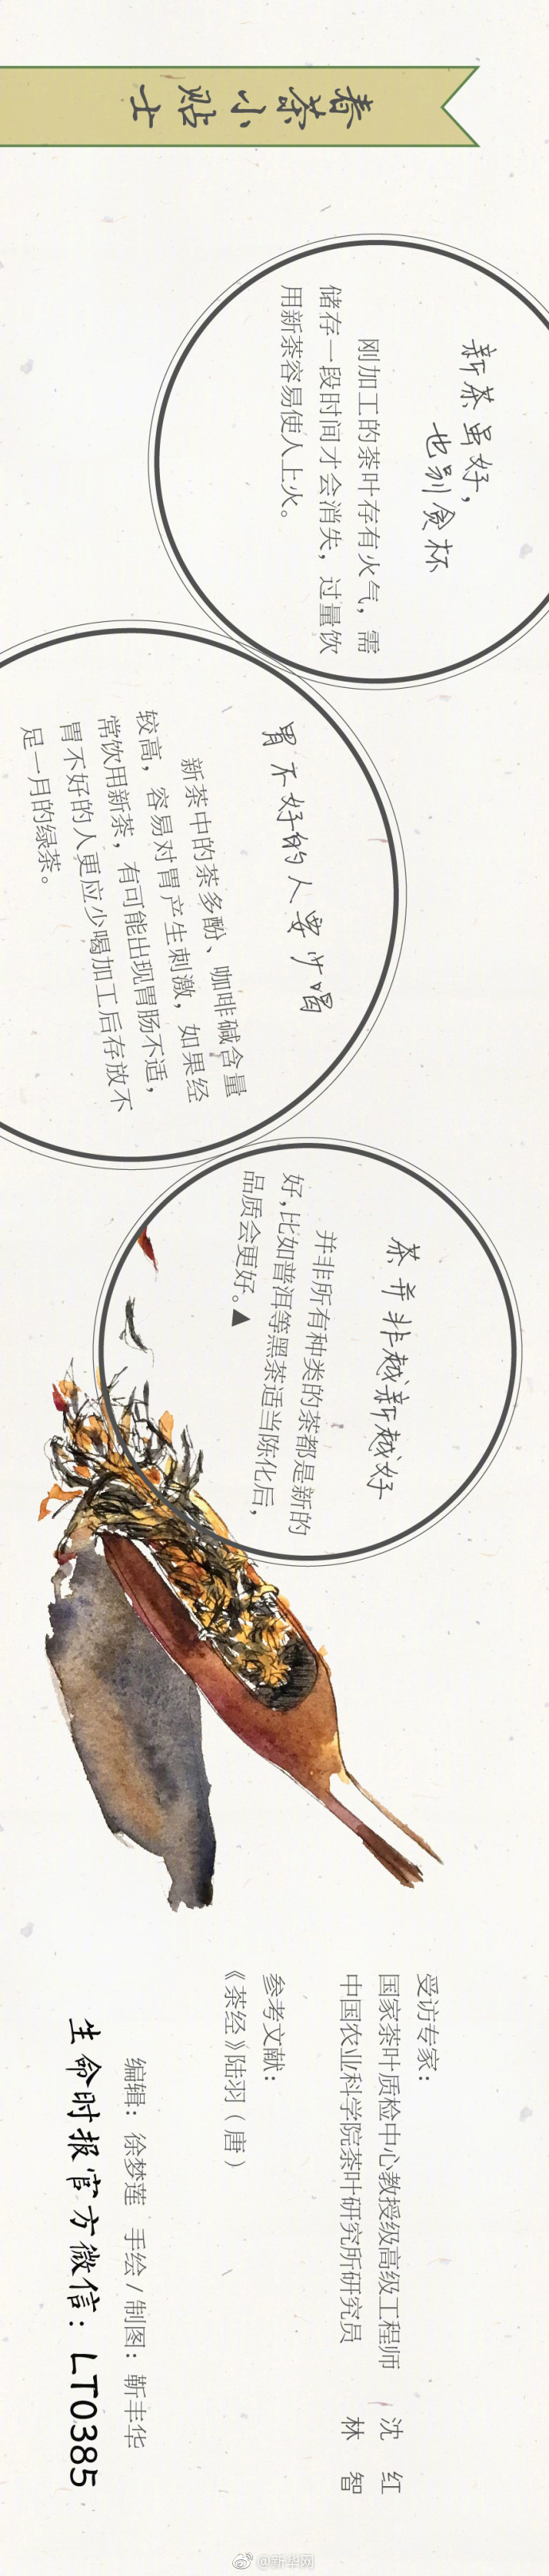 春茶小贴士
新茶虽好，
也别贪杯
刚加工的茶叶存有火气，需
储存一段时间才会消失，过量饮
用新茶容易使人上火。
胃不好的人要少喝
新茶中的茶多酚、咖啡碱含量
较高，容易对胃产生刺激，如果经
常饮用新茶，有可能出现胃肠不适，
胃不好的人更应少喝加工后存放不
足一月的绿茶。
茶并非越新越好
并非所有种类的茶都是新的
好，比如普洱等黑茶适当陈化后，
品质会更好。▲
受访专家：
国家茶叶质检中心教授级高级工程师 沈 红
中国农业科学院茶叶研究所研究员 林 智
参考文献：
《茶经》陆羽（唐）
编辑：徐梦莲 手绘/制图：靳丰华
生命时报官方微信：LT0385
@新华网